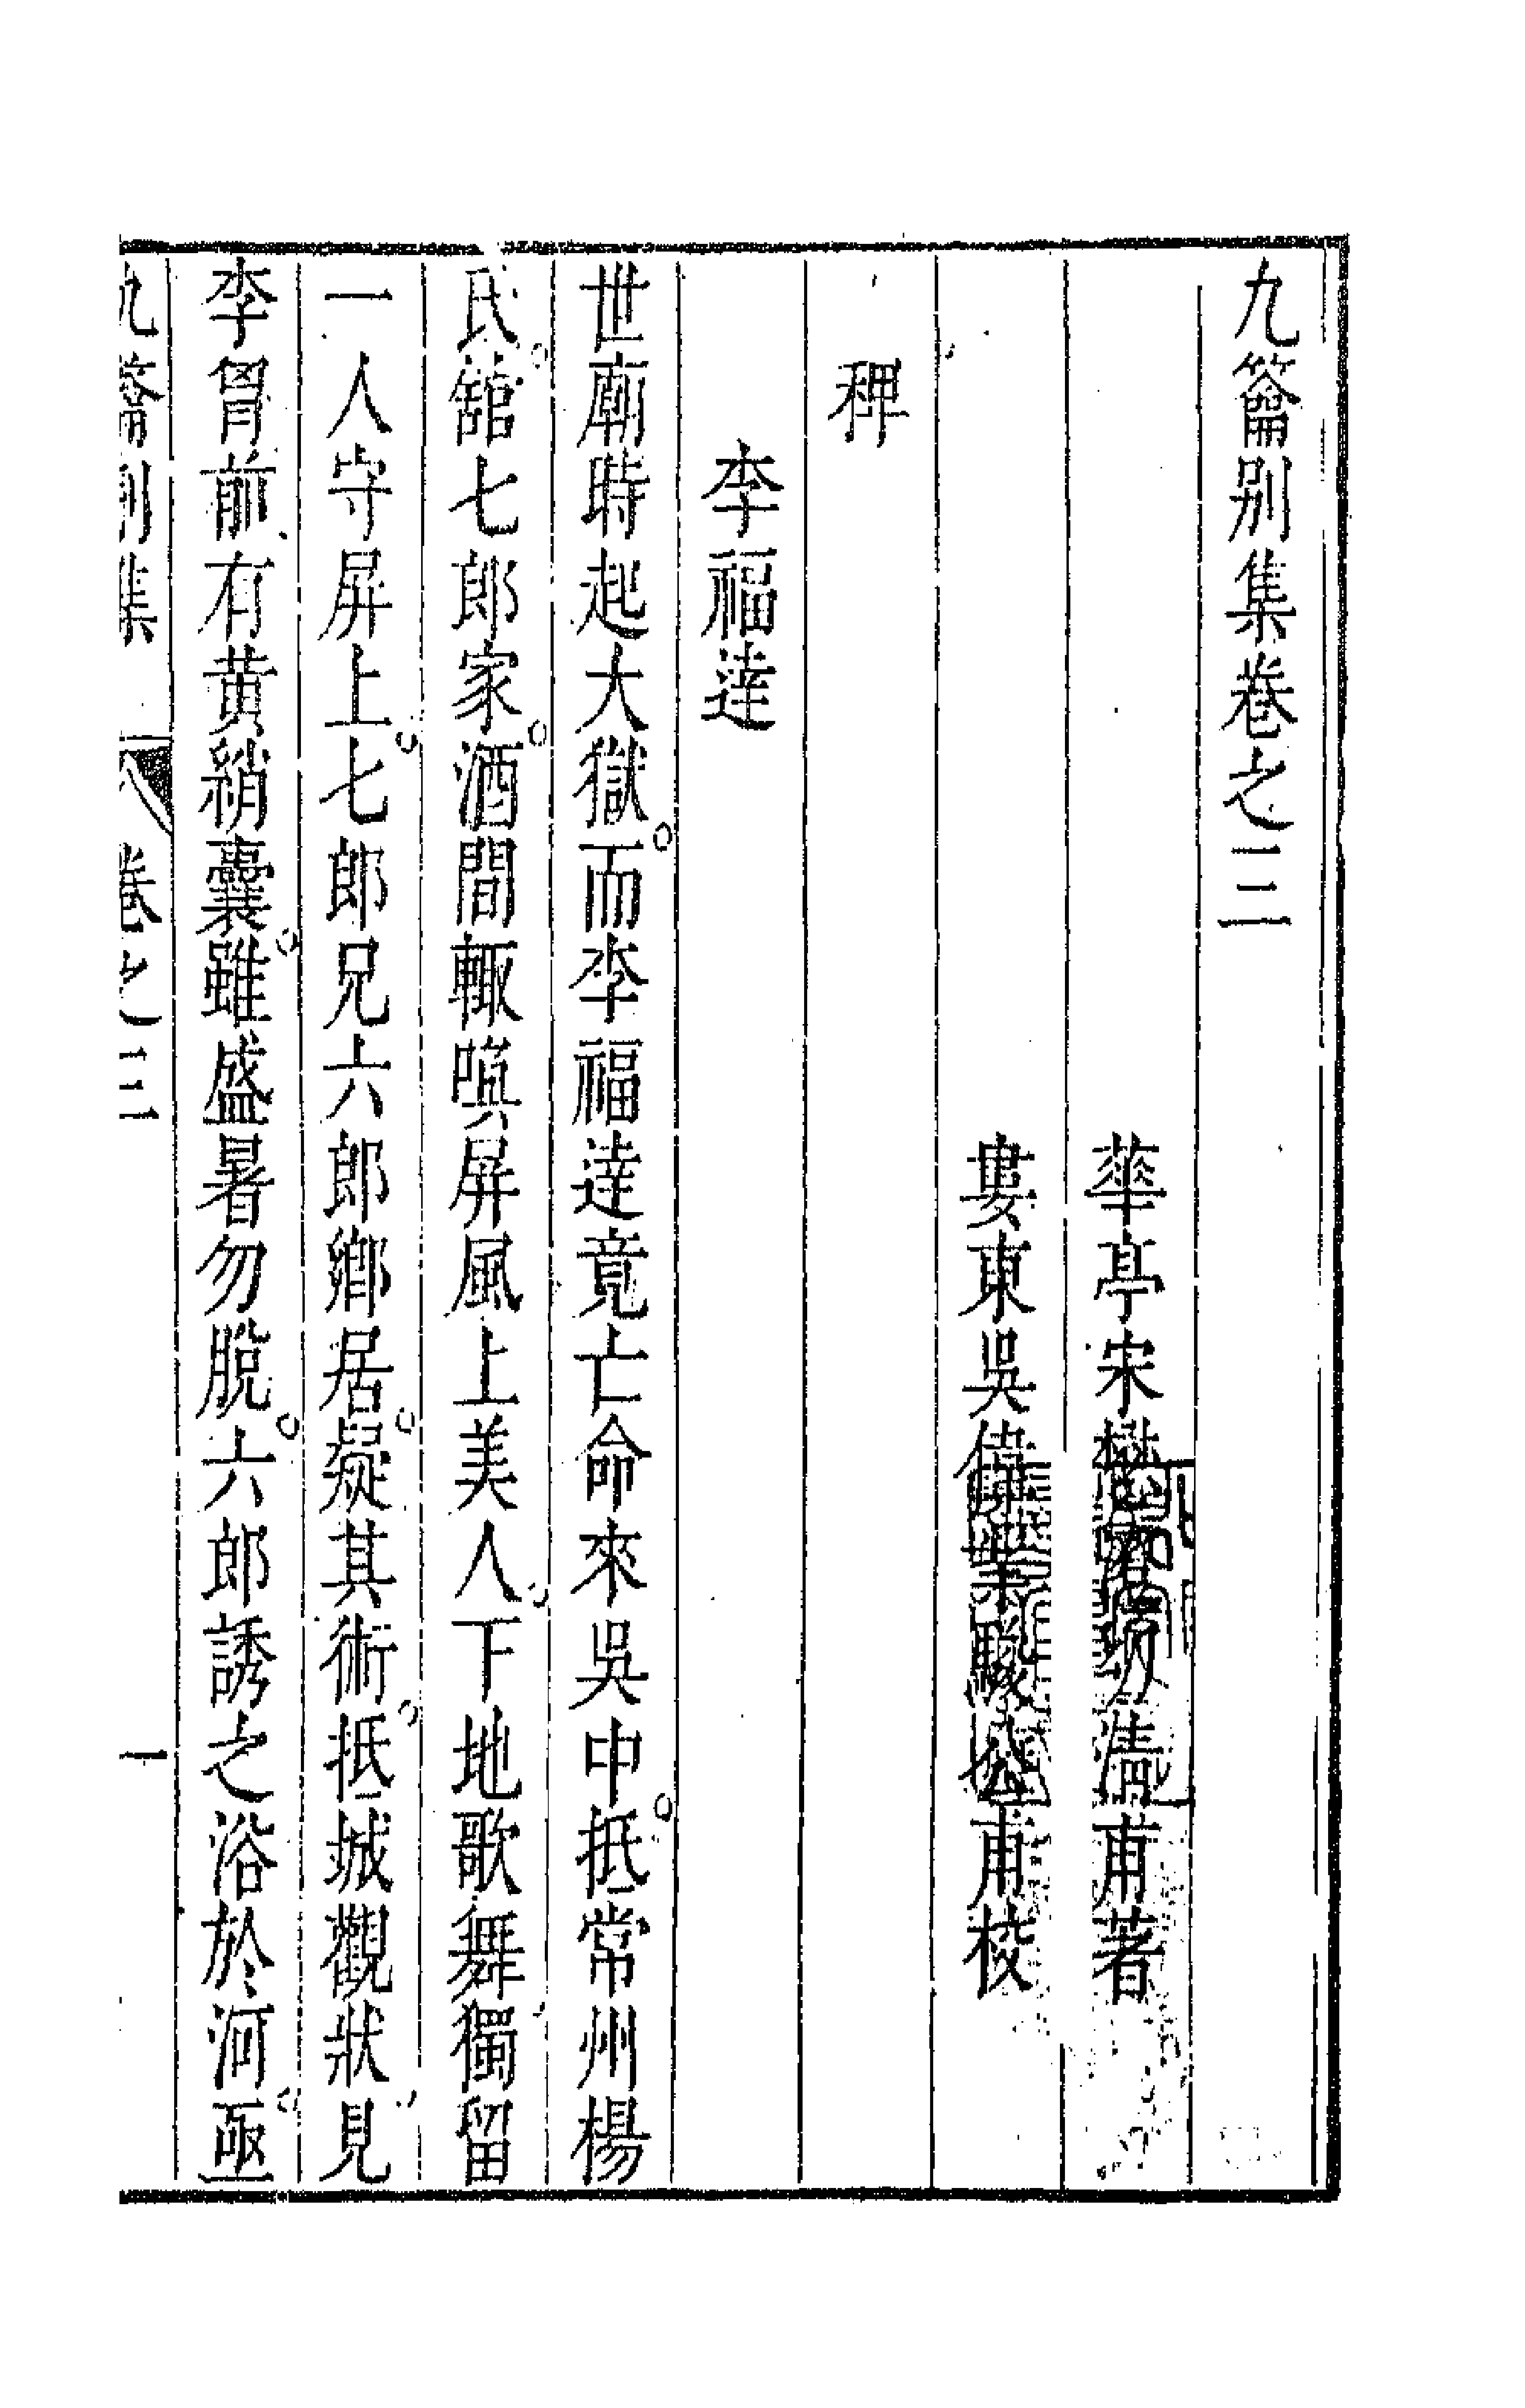 九籥别集卷之三
華亭宋懋澄幼清甫著
婁東吳偉業駿公甫校
稗
李福達
世廟時起大獄而李福達竟亡命來吳中抵常州楊
氏舘七郎家酒間輙嘆屏風上美人下地歌舞獨留
一人守屏上七郎兄六郎鄉居疑其術抵城觀狀見
李胷前有黄綃囊雖盛暑勿脫六郎誘之浴於河亟
九籥别集 卷之三 一